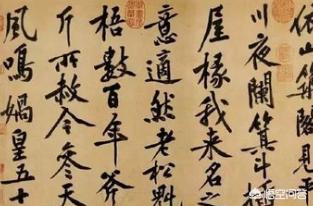 依山築閣見平
川夜闌箕斗
屋椽我來名之
意適然老松魁
梧數百年斧
斤所赦今參天
風鳴媧皇五十
悟空问答